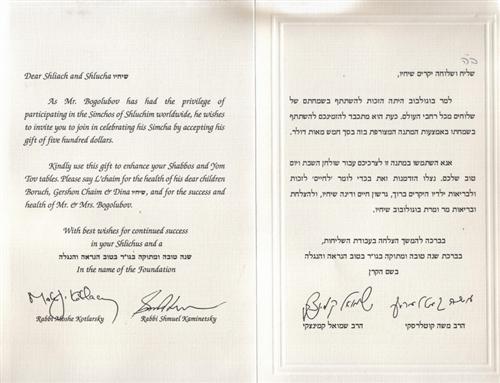 Dear Shliach and Shlucha שיחיו
As Mr. Bogolubov has had the privilege of
participating in the Simchos of Shluchim worldwide, he wishes
to invite you to join in celebrating his Simcha by accepting his
gift of five hundred dollars.
Kindly use this gift to enhance your Shabbos and Yom
Tov tables. Please say L'chaim for the health of his dear children
Boruch, Gershon Chaim & Dina שיחיו, and for the success and
health of Mr. & Mrs. Bogolubov.
With best wishes for continued success
in your Shlichus and a
שנה טובה ומתוקה בגו"ר בטוב הנראה והנגלה
In the name of the Foundation
Rabbi Moshe Kotlarsky Rabbi Shmuel Kaminetsky
ב"ה
שליח ושלוחה יקרים שיחיו,
למר בוגולובוב היתה הזכות להשתתף בשמחתם של
שלוחים מכל רחבי העולם. כעת הוא מתכבד להזמינכם להשתתף
בשמחתו באמצעות המתנה המצורפת בזה בסך חמש מאות דולר.
אנא השתמשו במתנה זו לצרכיכם עבור שולחן השבת ויום
טוב שלכם. נצלו הזדמנות זאת בכדי לומר 'לחיים' לזכות
ולבריאות ילדיו היקרים ברוך, גרשון חיים ודינה שיחיו, ולהצלחת
ובריאות מר ומרת בוגולובוב שיחיו.
בברכה להמשך הצלחה בעבודת השליחות,
בברכת שנה טובה ומתוקה בגו"ר בטוב הנראה והנגלה
בשם הקרן
הרב משה קוטלרסקי הרב שמואל קמינצקי